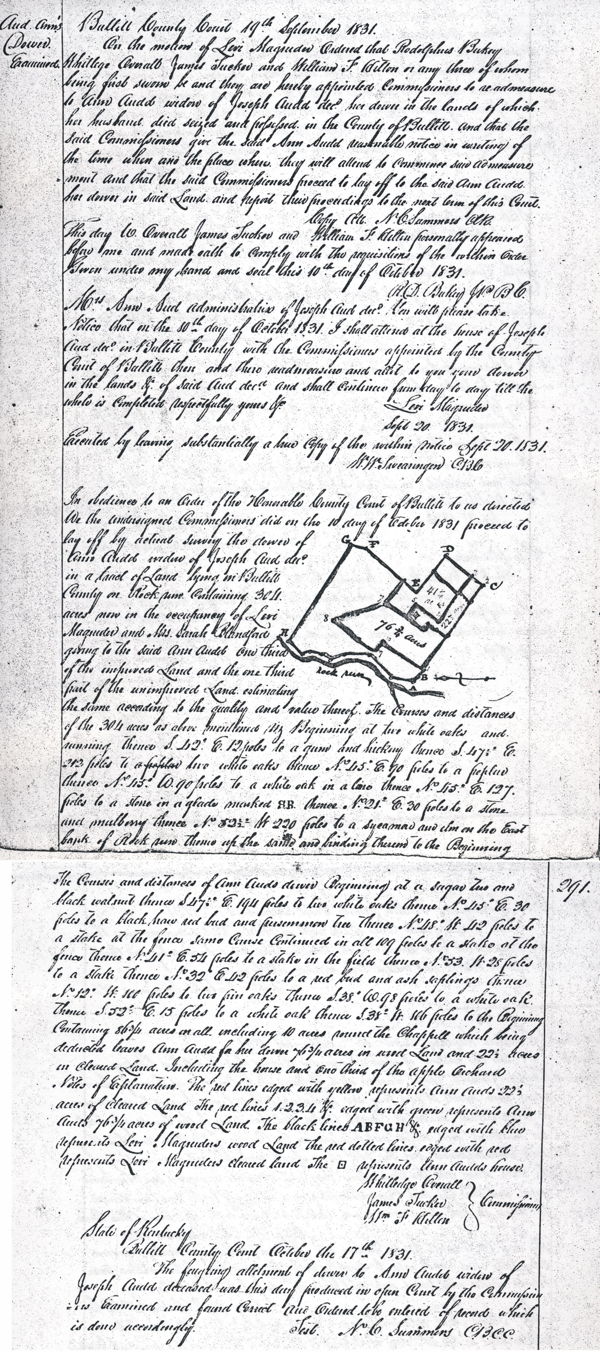 Aud Ann's
Dower
Examined
Bullitt County Court 19th September 1831.
On the motion of Levi Magruder Ordered that Rodolphus Bukey
Whitlege Overall James Tucker and William F. Kitten or any three of whom
being first sworn be and they are hereby appointed Commissioners to re admeasure
to Ann Audd widow of Joseph Audd decd. her dower in the lands of which
her husband died seized and possessed in the County of Bullitt. And that the
said Commissioners give the said Ann Audd reasonable notice in writing of
the time when and the place where they will attend to commence said admeasure
ment and that the said Commissioners proceed to lay off to the said Ann Audd
her dower in said Land and report their proceedings to the next term of this Court.
Copy Att. N. C. Summers Clk
This day W. Overall James Tucker and William F. Kitten personally appeared
before me and made oath to comply with the requisitions of the within order
Given under my hand and seal this 10th day of October 1831.
R. D. Bukey J.P. B.C.
Mrs Ann Aud administratrix of Joseph Aud decd. You will please take
Notice that on the 10th day of October 1831. I shall attend at the house of Joseph
Aud decd in Bullitt County with the Commissioners appointed by the County
Court of Bullitt then and there readmeasure and allot to you your dower
in the lands &c. of said Aud decd and shall continue from day to day till the
whole is completed respectfully yours &c
Levi Magruder
Sept 20. 1831.
Executed by leaving substantially a true Copy of the within notice Sept 20. 1831.
Wm Swearingen CBC
In obedience to an Order of the Honorable County Court of Bullitt to us directed
We the undersigned Commissioners did on the 10 day of October 1831 proceed to
lay off by actual survey the dower of
Ann Audd widow of Joseph Aud decd.
in a tract of Land lying in Bullitt
County on Rock run Containing 304
acres now in the occupancy of Levi
Magruder and Mrs. Sarah Blandford
giving to the said Ann Audd One third
of the improved Land and the one third
part of the unimproved Land estimating
G F D C E 41 76 3/4 acres H Rock run B A
the same according to the quality and value thereof. The Courses and distances
of the 304 acres as above mentioned viz Beginning at two white oaks and
running thence S. 42° E. 12 poles to a gum and hickory thence S. 47½° E.
213 poles to a poplar two white oaks thence N. 45° E. 90 poles to a poplar
thence N. 45° W. 90 poles to a white oak in a line thence N. 45° E. 127.
poles to a stone in a glade marked RR. thence N. 21° E. 30 poles to a stone
and mulberry thence N. 52½° W 220 poles to a sycamore and elm on the East
bank of Rock run thence up the same and binding thereon to the Beginning
291.
The Courses and distances of Ann Auds dower Beginning at a sugar tree and
black walnut thence S 47½° E. 194 poles to two white oaks thence N. 45° E. 30
poles to a black haw red bud and persimmon tree thence N. 48° W. 42 poles to
a stake at the fence same Course Continued in all 109 poles to a stake at the
fence thence N. 41° E. 54 poles to a stake in the field thence N. 53. W 28 poles
to a stake thence N. 32° E 42 poles to a red bud and ash saplings thence
N. 12° W. 100 poles to two pin oaks thence S. 38° W. 98 poles to a white oak
thence S. 52° E. 15 poles to a white oak thence S. 38° W. 106 poles to the Beginning
Containing 86 3/4 acres in all including 10 acres round the Chappell which being
deducted leaves Ann Audd for her dower 76 3/4 acres in wood Land and 22½ acres
in cleared Land. Including the house and one third of the apple Orchard
Notes of Explanation. The red lines edged with yellow represents Ann Auds 22½
acres of Cleared Land The red lines 1.2.3.4 &c. edged with green represents Ann
Auds 76 3/4 acres of wood Land. The black lines ABFGH &c edged with blue
represents Levi Magruders wood Land the red dotted lines edged with red
represents Levi Magruders cleared land The ⊡ represents Ann Audds house.
Whitledge Overall
James Tucker
Wm F Kitten
Commissioners
State of Kentucky
Bullitt County Court October the 17th 1831.
The foregoing allotment of dower to Ann Audd widow of
Joseph Audd deceased was this day produced in open Court by the Commission
ers Examined and found Correct and Ordered to be entered of record which
is done accordingly. Test. N. C. Summers CBCC